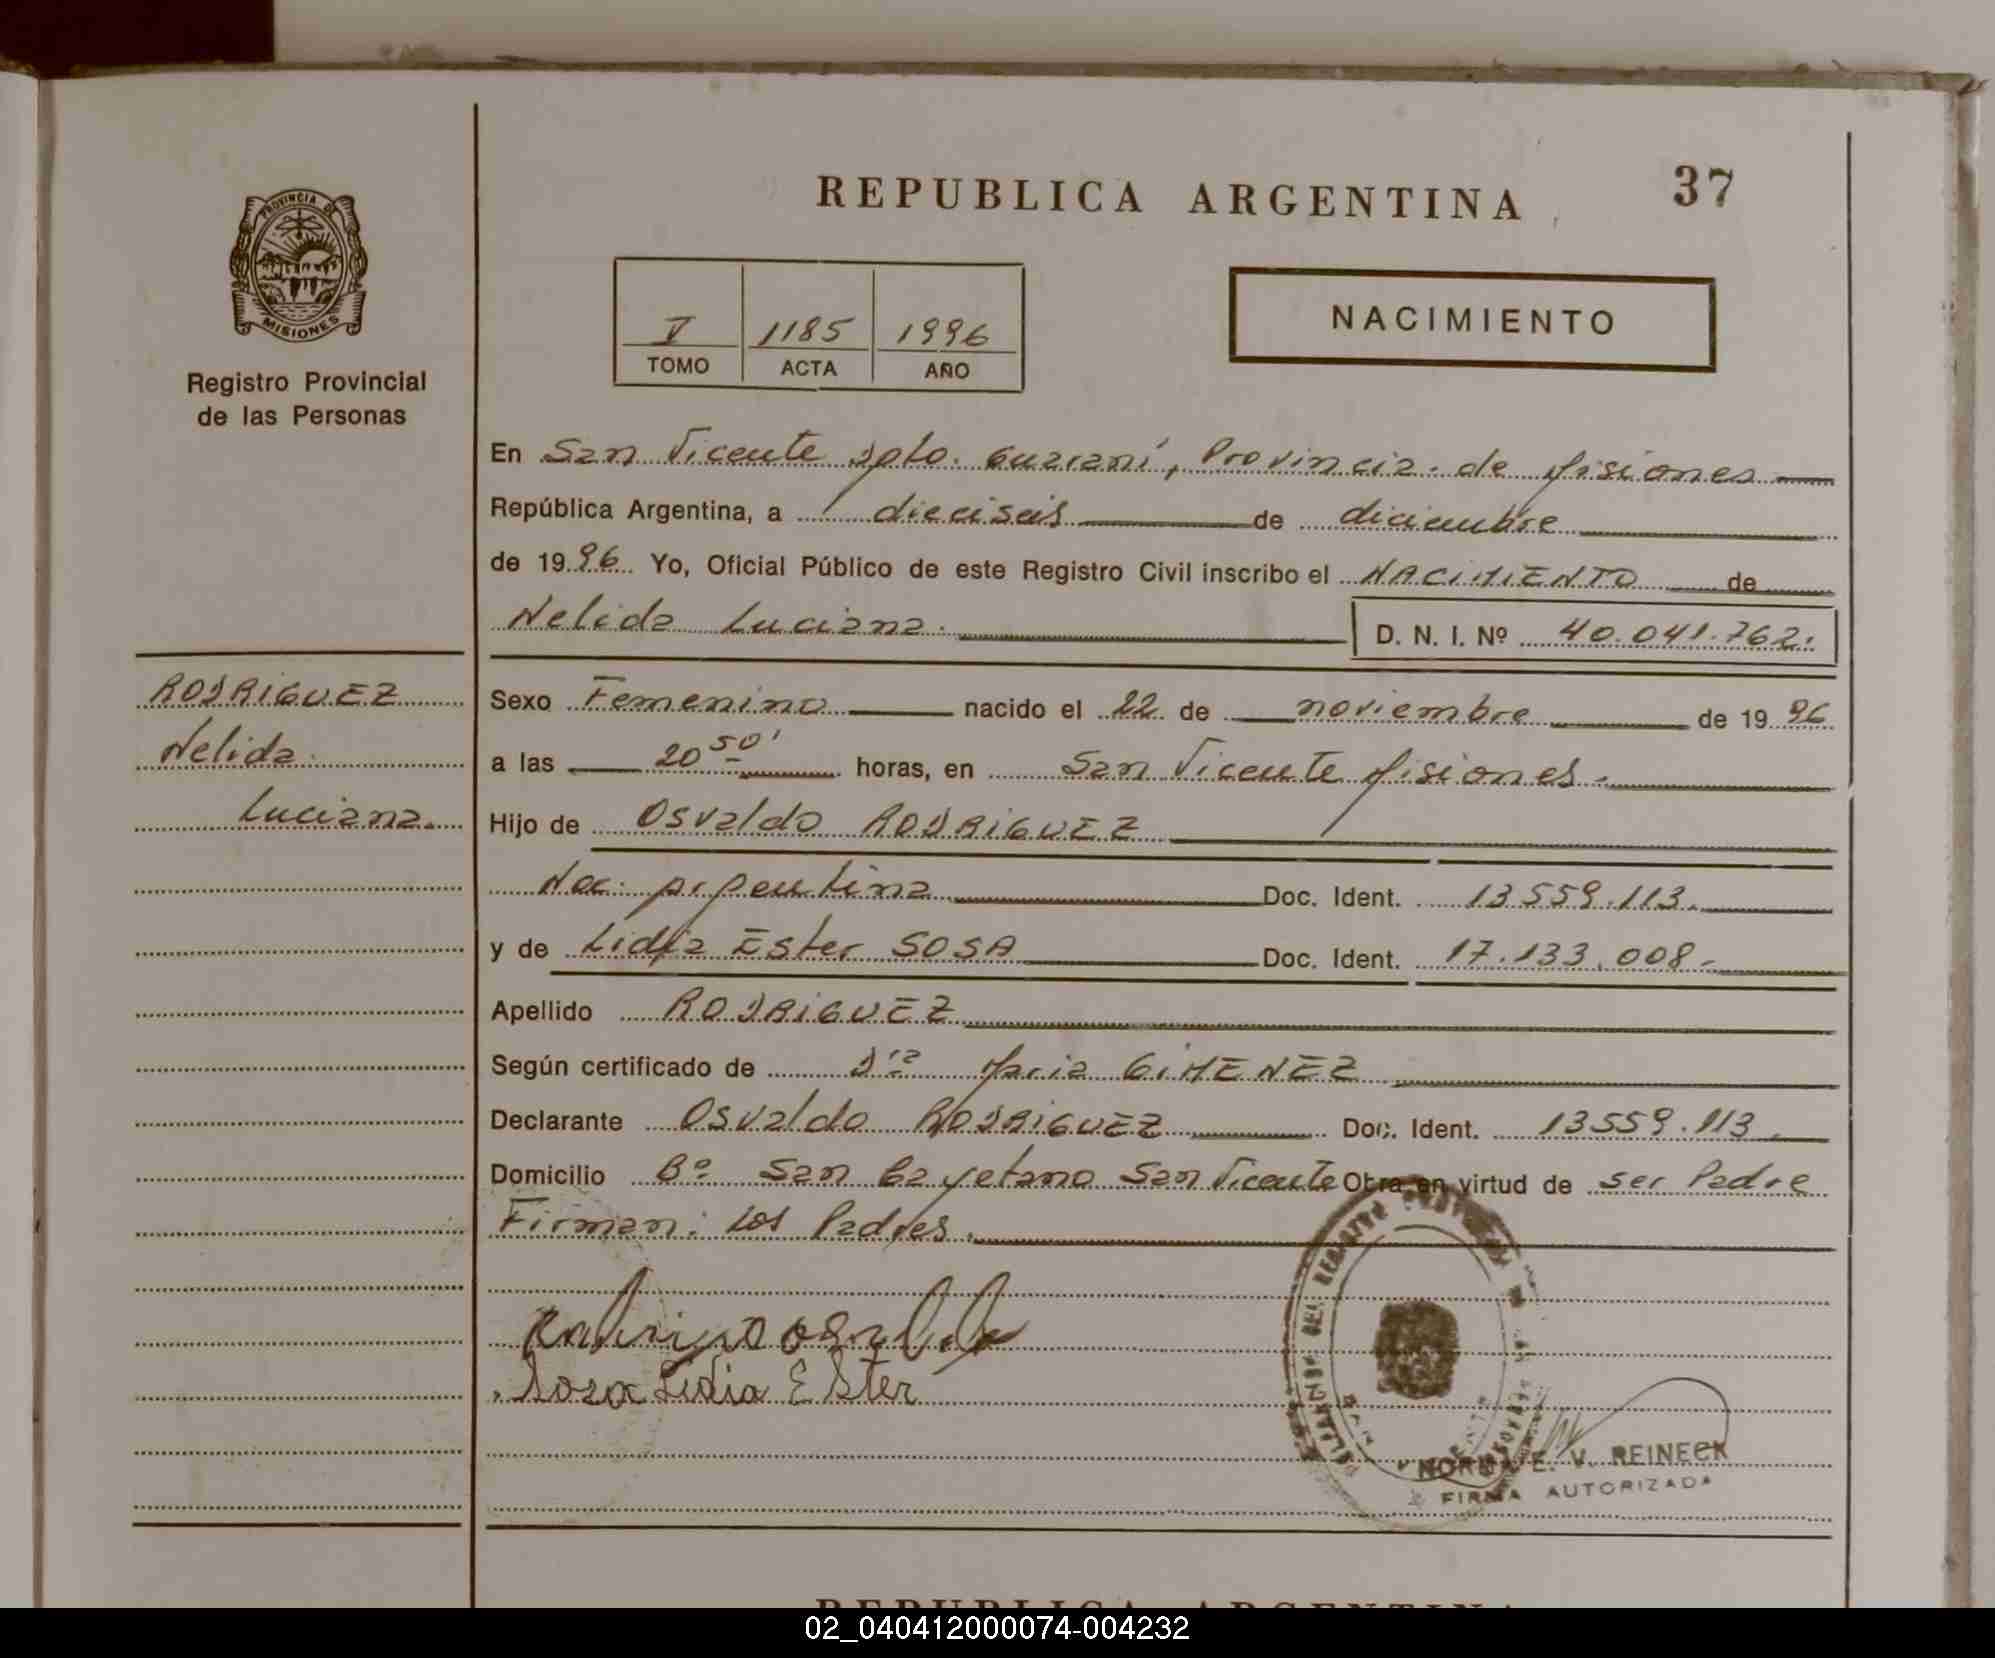 REPUBLICA ARGENTINA
37
PROVINCIA DE
MISIONES
Registro Provincial
de las Personas
V 1185 1996
TOMO ACTA AÑO
NACIMIENTO
En San Vicente Dpto. Guaraní, Provincia de Misiones
República Argentina, a dieciseis de diciembre
de 1996 Yo, Oficial Público de este Registro Civil inscribo el NACIMIENTO de
Nelida Luciana.
D. N. I. Nº 40.041.762.
RODRIGUEZ
Nelida
Luciana.
Sexo Femenino nacido el 22 de noviembre de 1996
a las 20 50' horas, en San Vicente Misiones.
Hijo de Osvaldo RODRIGUEZ
Nac. Argentina Doc. Ident. 13559.113.
y de Lidia Ester SOSA Doc. Ident. 17.133.008.-
Apellido RODRIGUEZ
Según certificado de Dra Maria GIMENEZ
Declarante Osvaldo RODRIGUEZ Doc. Ident. 13559.113.
Domicilio Bº San Cayetano San Vicente Obra en virtud de ser Padre
Firman: Los Padres.
Sosa Lidia Ester
NORMA E. V. REINECK
FIRMA AUTORIZADA
REPUBLICA ARGENTINA
02_040412000074-004232